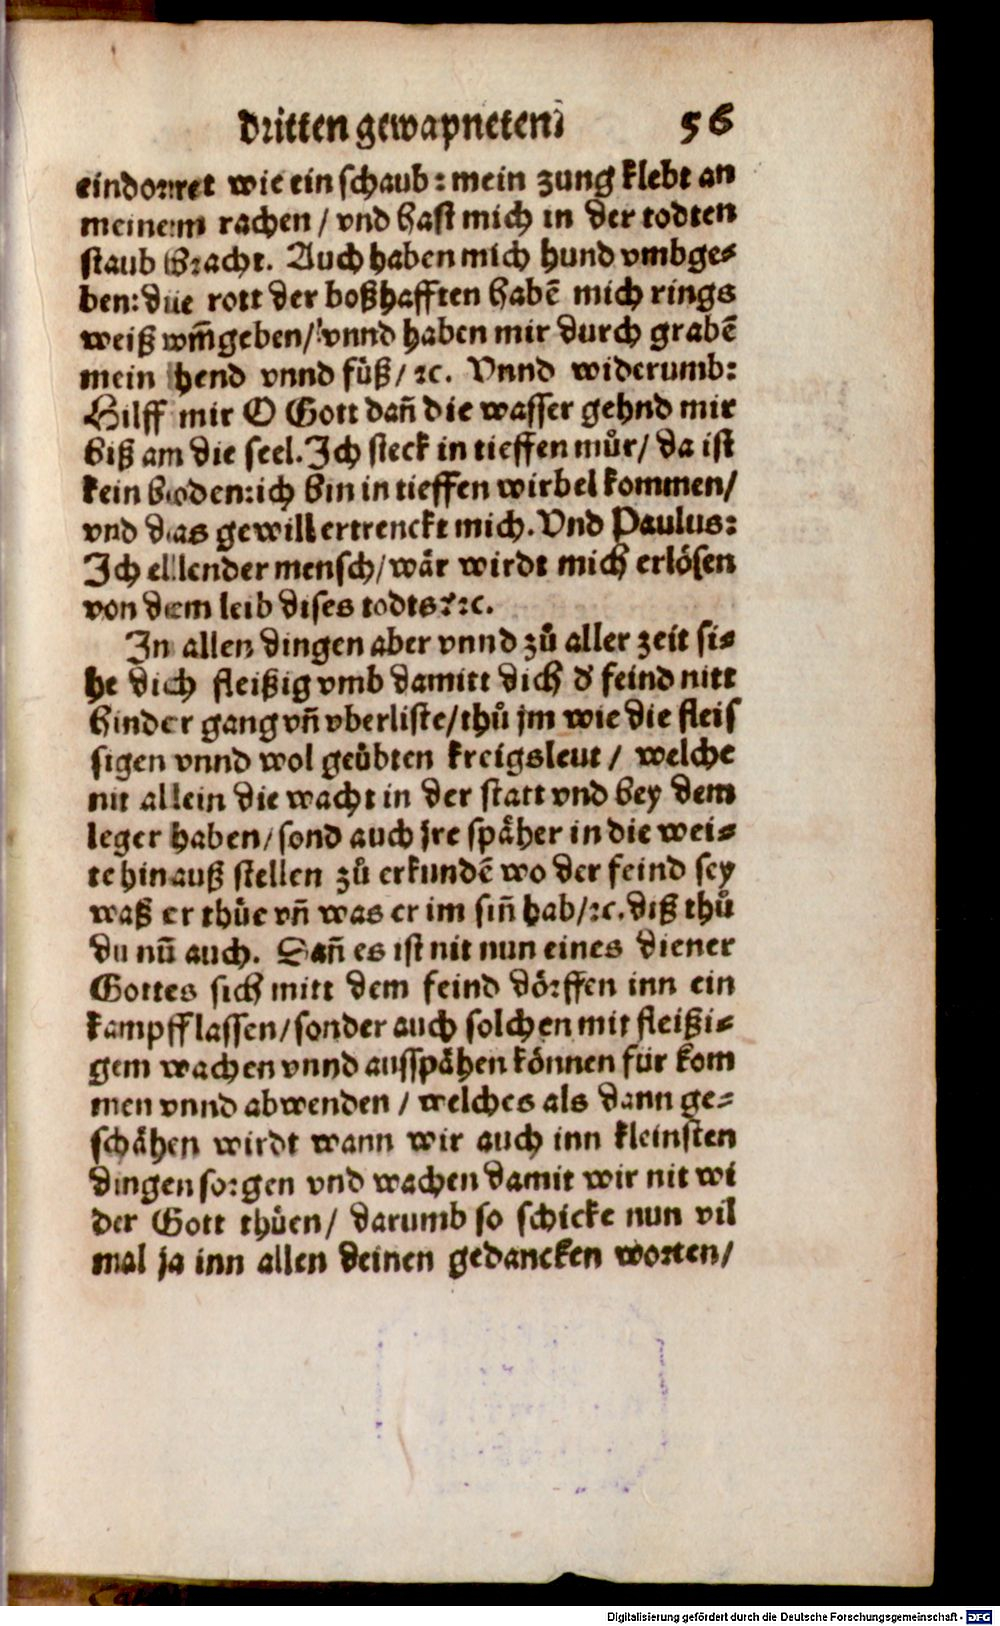 dritten gewapneten 56
eindorret wie ein schaub: mein zung klebt an
meinem rachen / vnd hast mich in der todten
staub bracht. Auch haben mich hund vmbge⸗
ben: die rott der boßhafften habē mich rings
weiß vm̄geben / vnnd haben mir durch grabē
mein hend vnnd füß / ꝛc. Vnnd widerumb:
Hilff mir O Gott dañ die wasser gehnd mir
biß am die seel. Ich steck in tieffen můr / da ist
kein boden: ich bin in tieffen wirbel kommen /
vnd das gewill ertrenckt mich. Vnd Paulus:
Ich ellender mensch / wär wirdt mich erlösen
von dem leib dises todts? ꝛc.
In allen dingen aber vnnd zů aller zeit si⸗
he dich fleißig vmb damitt dich d' feind nitt
hinder gang vñ vberliste / thů jm wie die fleis
sigen vnnd wol geübten kreigsleut / welche
nit allein die wacht in der statt vnd bey dem
leger haben / sond auch jre späher in die wei⸗
te hinauß stellen zů erkundē wo der feind sey
waß er thüe vñ was er im siñ hab / ꝛc. diß thů
du nū auch. Dañ es ist nit nun eines diener
Gottes sich mitt dem feind dörffen inn ein
kampff lassen / sonder auch solchen mit fleißi⸗
gem wachen vnnd ausspähen können für kom
men vnnd abwenden / welches als dann ge⸗
schähen wirdt wann wir auch inn kleinsten
dingen sorgen vnd wachen damit wir nit wi
der Gott thüen / darumb so schicke nun vil
mal ja inn allen deinen gedancken worten /
Digitalisierung gefördert durch die Deutsche Forschungsgemeinschaft - DFG